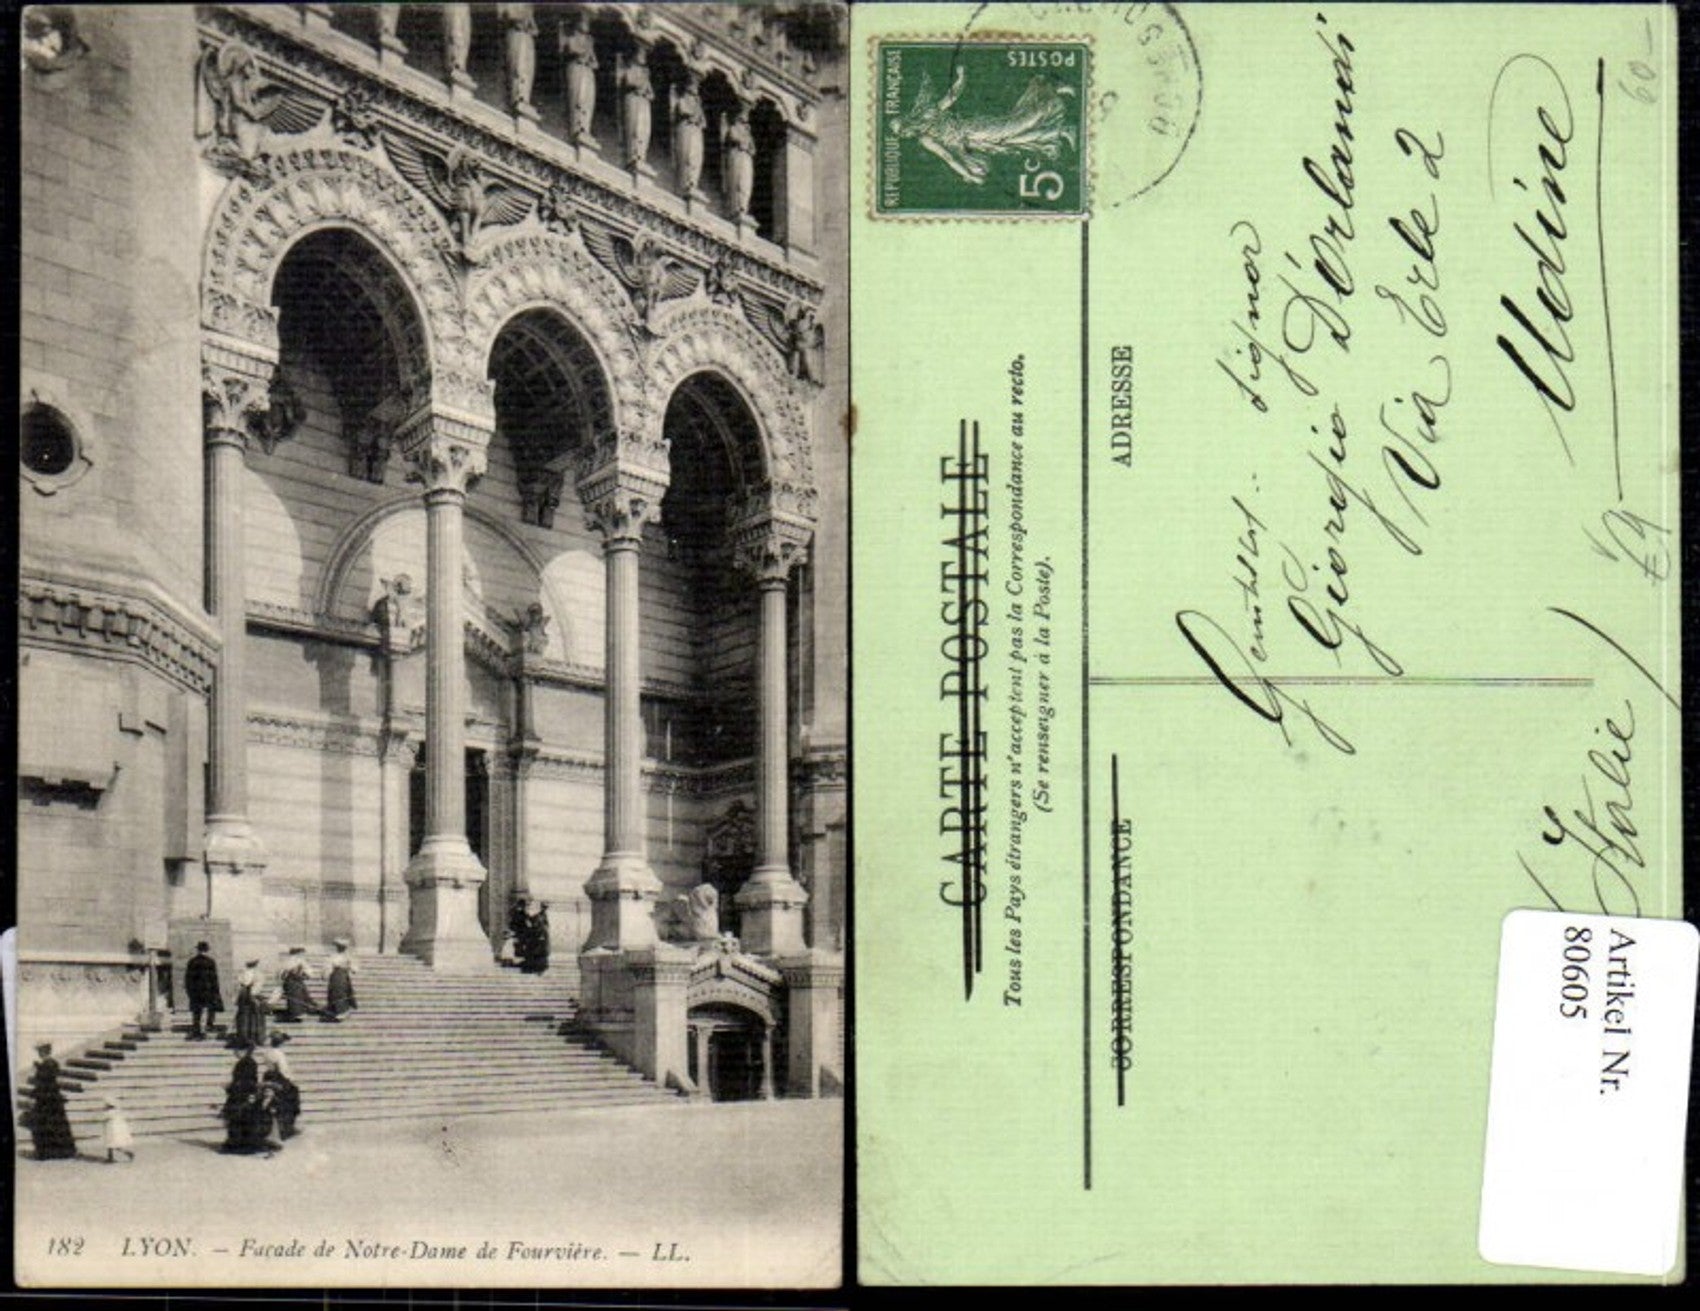 182 LYON. — Façade de Notre-Dame de Fourvière. — LL.
RÉPUBLIQUE FRANÇAISE
POSTES
5c
CARTE POSTALE
Tous les Pays étrangers n'acceptent pas la Correspondance au recto.
(Se renseigner à la Poste).
CORRESPONDANCE
ADRESSE
Signor
Giorgio D'Orlandi
Via Erle 2
Udine
Italie
60-
Artikel Nr.
80605